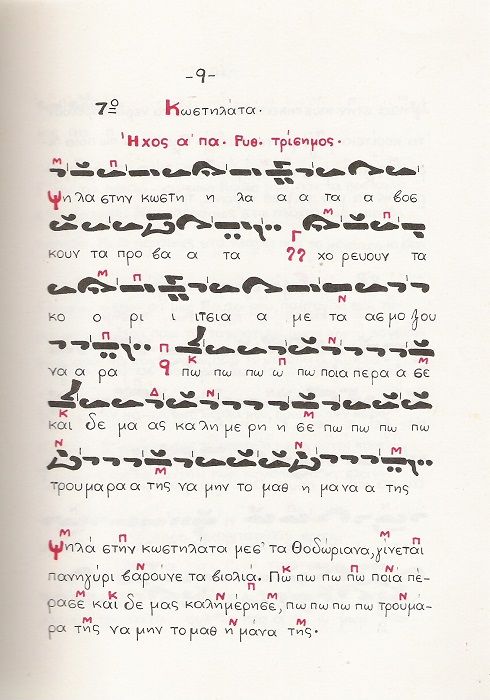 -9-
7º Κωστηλάτα.
Ήχος α' πα. Ρυθ. τρίσημος.
Μ Π
Ψηλα στην κωστη η λα α α τα α βος
Μ Π
κουν τα προ βα α τα Γ χο ρευουν τα
Μ Π Ν
κο ο ρι ι ιτσια α με τα ασμολου
Π Π Κ Π Ν Μ
να α ρα q πω πω πω ω πω ποια περα α σε
Κ Δ Ν Μ Ν
και δε μα ας καλη με ρη η σε πω πω πω πω
Ν Μ Ν Μ
τρουμαρα α της να μην το μαθ η μανα α της
Ψηλά στην κωστηλάτα μεσ' τα Θοδώριανα, γίνεται
πανηγύρι βαρούνε τα βιολιά. Πω πω πω πω ποιά πέ-
ρασε και δε μας καλημέρησε, πω πω πω πω τρουμά-
ρα της να μην το μαθ η μάνα της.